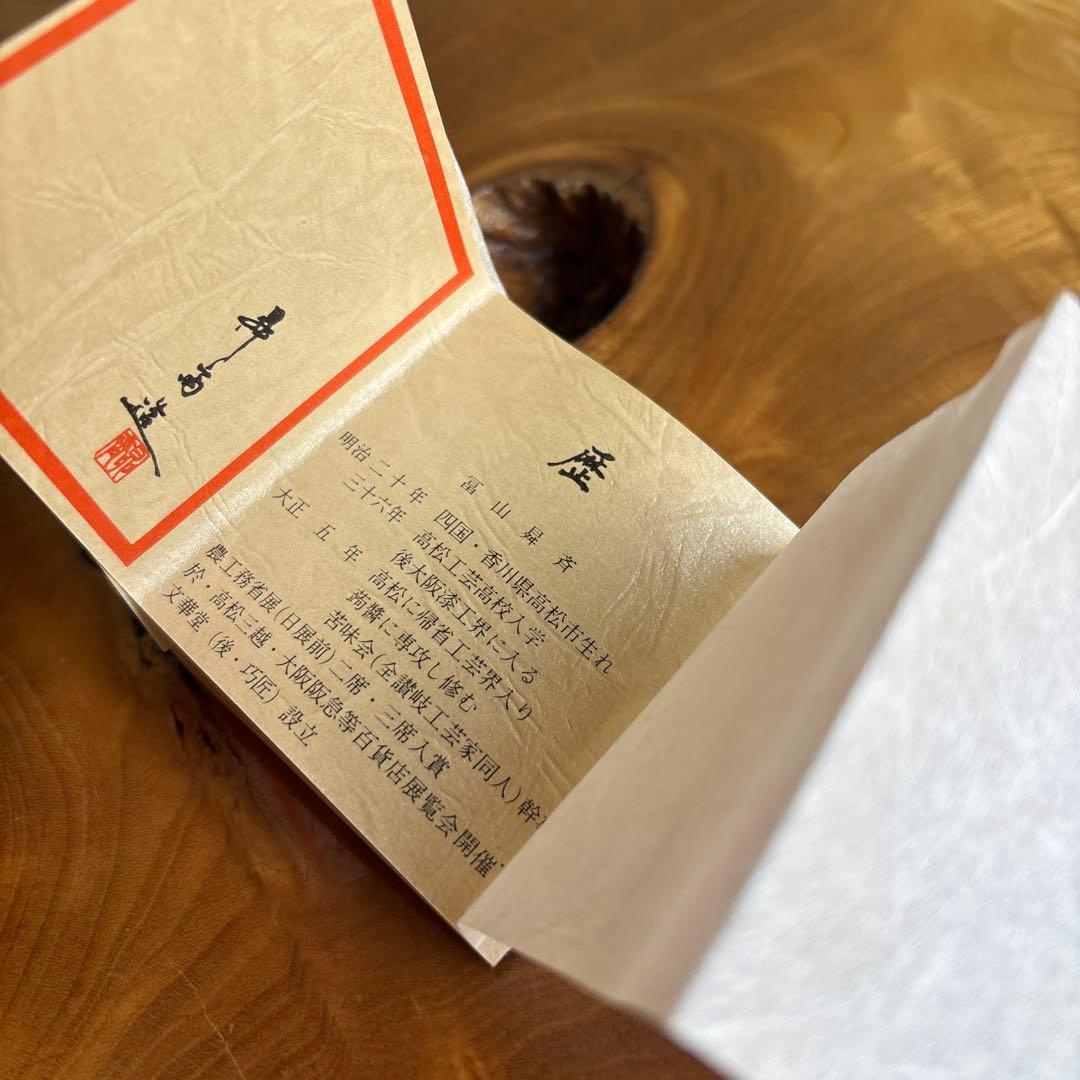 歴
冨山曻斉
明治二十年 四国・香川県高松市生れ
三十六年 高松工芸高校入学
後大阪漆工界に入る
大正五年 高松に帰省工芸界入り
蒟醬に専攻し修む
苦味会(全讃岐工芸家同人)幹
農工務省展(日展前)二席・三席入賞
於 高松三越・大阪阪急等百貨店展覧会開催
文華堂(後・巧匠)設立
造